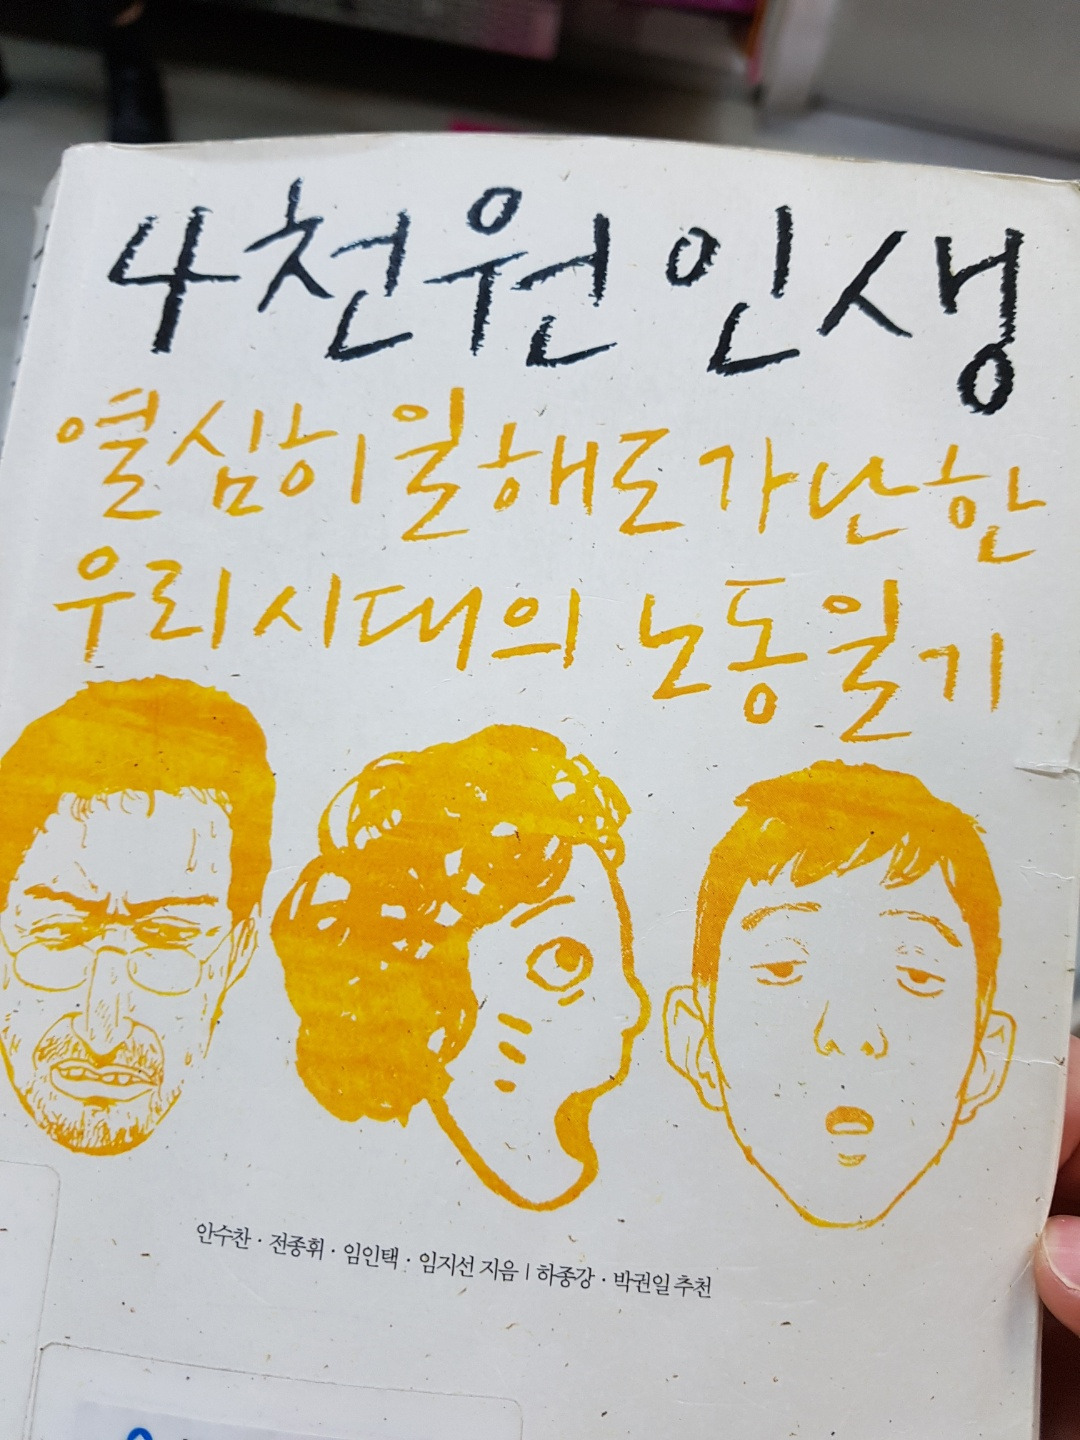 4천원 인생
열심히 일해도 가난한
우리시대의 노동일기
안수찬 · 전종휘 · 임인택 · 임지선 지음 | 하종강 · 박권일 추천